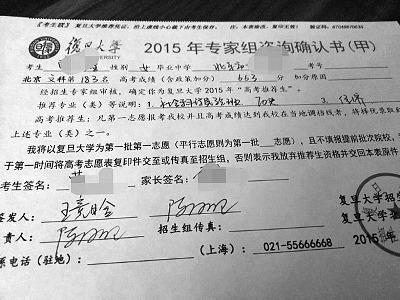 《考生联》复旦大学推荐凭证，沿上虚线小心裁下由考生保存。 注：本表涂改、复印无效！ 验证码：67019870635
復旦大学 2015年专家组咨询确认书(甲)
考生 性别 女 毕业中学 北京
北京 文科第183名 高考成绩（含政策加分） 663 分 加分原因
经招生专家组审核，确定你为复旦大学 2015年“高考推荐生”。
推荐专业（类）等说明：1. 历史
高考推荐生：凡第一志愿报考我校并且高考成绩达到我校在当地调档线者，将择优录取
上述专业（类）之一。
我将以复旦大学为第一批第一志愿（平行志愿则为第一批 志愿），且不填报提前批次院校，
于第一时间将高考志愿表复印件交至或传真至招生组，否则表示我放弃推荐生资格并交回本表原件
考生签名： 家长签名：
签发人： 复旦大学招生
责人： 招生组传真： 复旦大学
系电话（驻地）： （上海）：021-55666668 2015年